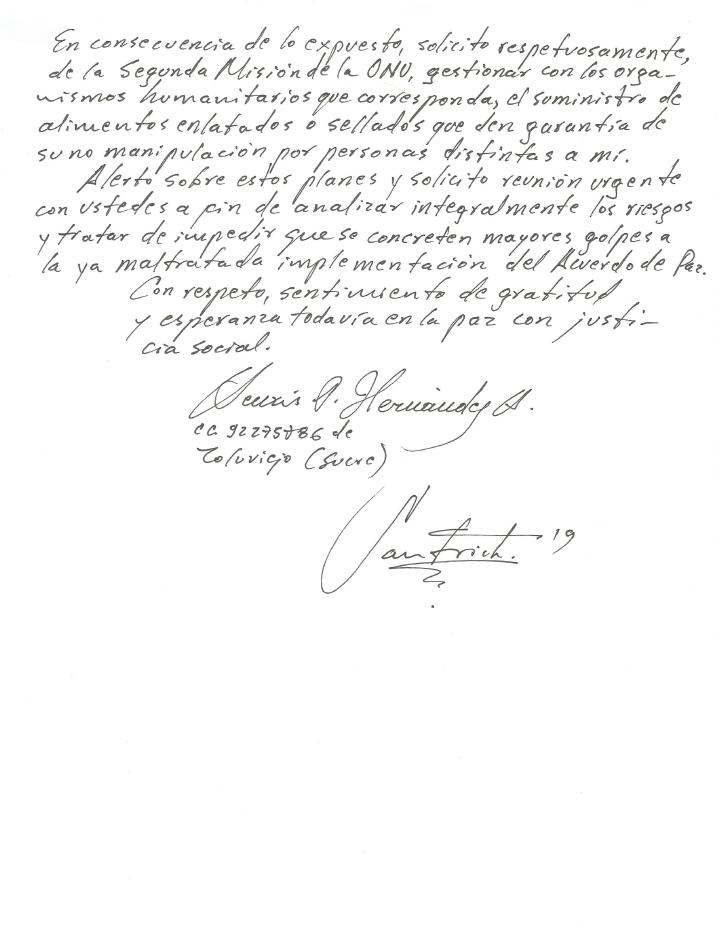 En consecuencia de lo expuesto, solicito respetuosamente,
de la Segunda Misión de la ONU, gestionar con los orga-
nismos humanitarios que corresponda, el suministro de
alimentos enlatados o sellados que den garantía de
su no manipulación por personas distintas a mí.
Alerto sobre estos planes y solicito reunión urgente
con ustedes a fin de analizar integralmente los riesgos
y tratar de impedir que se concreten mayores golpes a
la ya maltratada implementación del Acuerdo de Paz.
Con respeto, sentimiento de gratitud
y esperanza todavía en la paz con justi-
cia social.
Seuxis P. Hernández S.
cc 92275786 de
Toluviejo (Sucre)
Santrich. '19